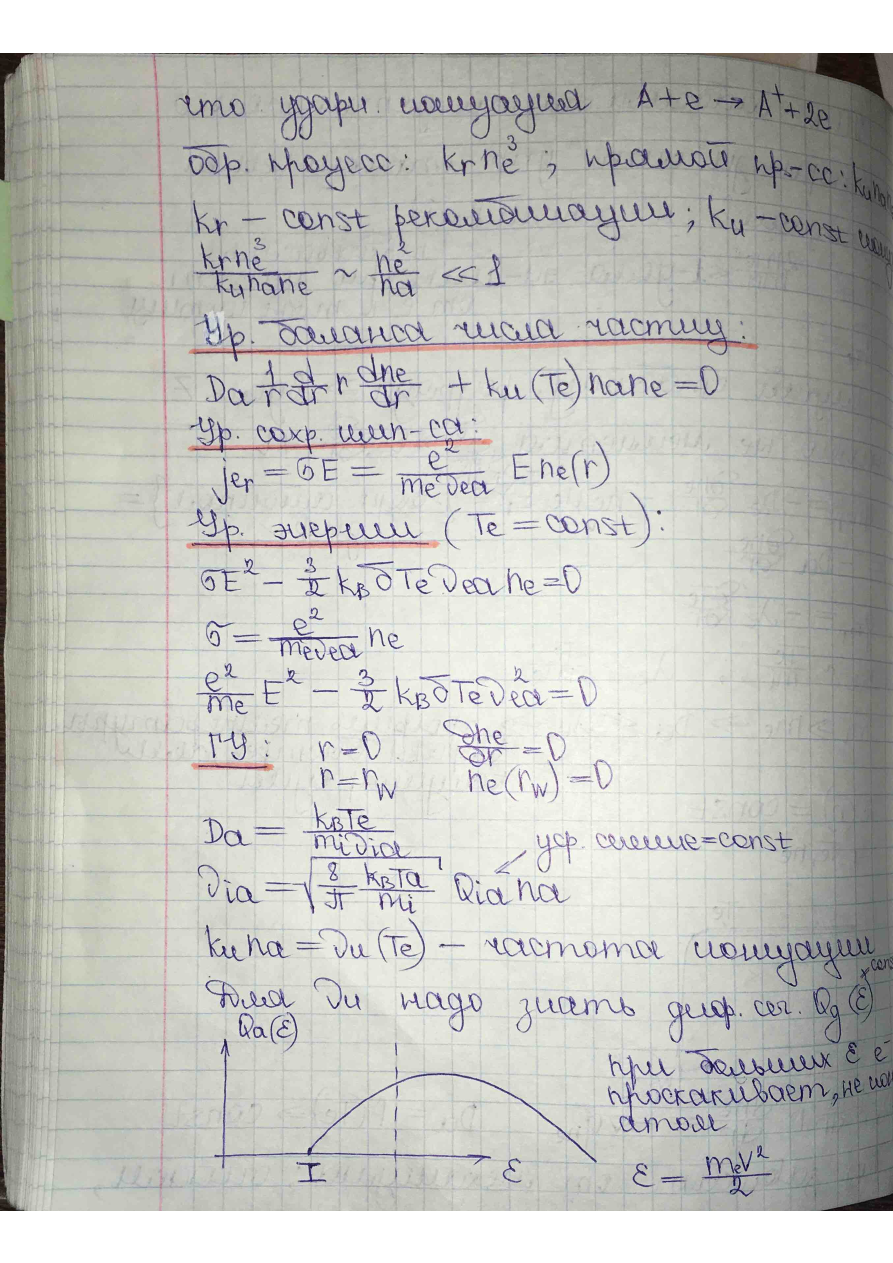 что ударн. ионизация A + e → A⁺ + 2e
обр. процесс: kᵣnₑ³ ; прямой пр-сс: kᵤnₐnₑ
kᵣ – const рекомбинации; kᵤ – const иониз
kᵣnₑ³ / kᵤnₐnₑ ~ nₑ² / nₐ ≪ 1
Ур. баланса числа частиц:
Dₐ 1/r d/dr r dnₑ/dr + kᵤ(Tₑ)nₐnₑ = 0
Ур. сохр. имп-са:
jₑᵣ = σE = e²/(mₑνₑₐ) E nₑ(r)
Ур. энергии (Tₑ = const):
σE² – 3/2 k_B δTₑνₑₐnₑ = 0
σ = e²/(mₑνₑₐ) nₑ
e²/mₑ E² – 3/2 k_B δTₑνₑₐ² = 0
ГУ: r = 0 ∂nₑ/∂r = 0
r = r_w nₑ(r_w) = 0
Dₐ = k_BTₑ/(mᵢνᵢₐ)
уср. сечение = const
νᵢₐ = √(8/π k_BTₐ/mᵢ) Qᵢₐnₐ
kᵤnₐ = νᵤ(Tₑ) – частота ионизации
Для νᵤ надо знать диф. сеч. Q_д(ε)
≠ const
Qₐ(ε)
при больших ε e⁻
проскакивает, не ион
атом
I ε ε = mₑv²/2